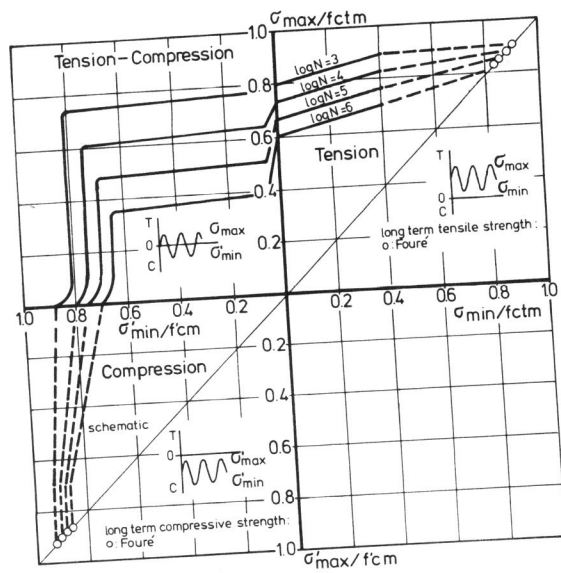 σmax/fctm
1.0
Tension-Compression
logN=3
logN=4
logN=5
logN=6
0.8
0.6
0.4
0.2
Tension
T
0
C
σmax
σ'min
T
0
C
σmax
σmin
long term tensile strength:
o: Fouré
1.0
0.8
0.6
0.4
0.2
0
0.2
0.4
0.6
0.8
1.0
σ'min/f'cm
σmin/fctm
Compression
schematic
T
0
C
σ'max
σ'min
long term compressive strength:
o: Fouré
0.2
0.4
0.6
0.8
1.0
σ'max/f'cm